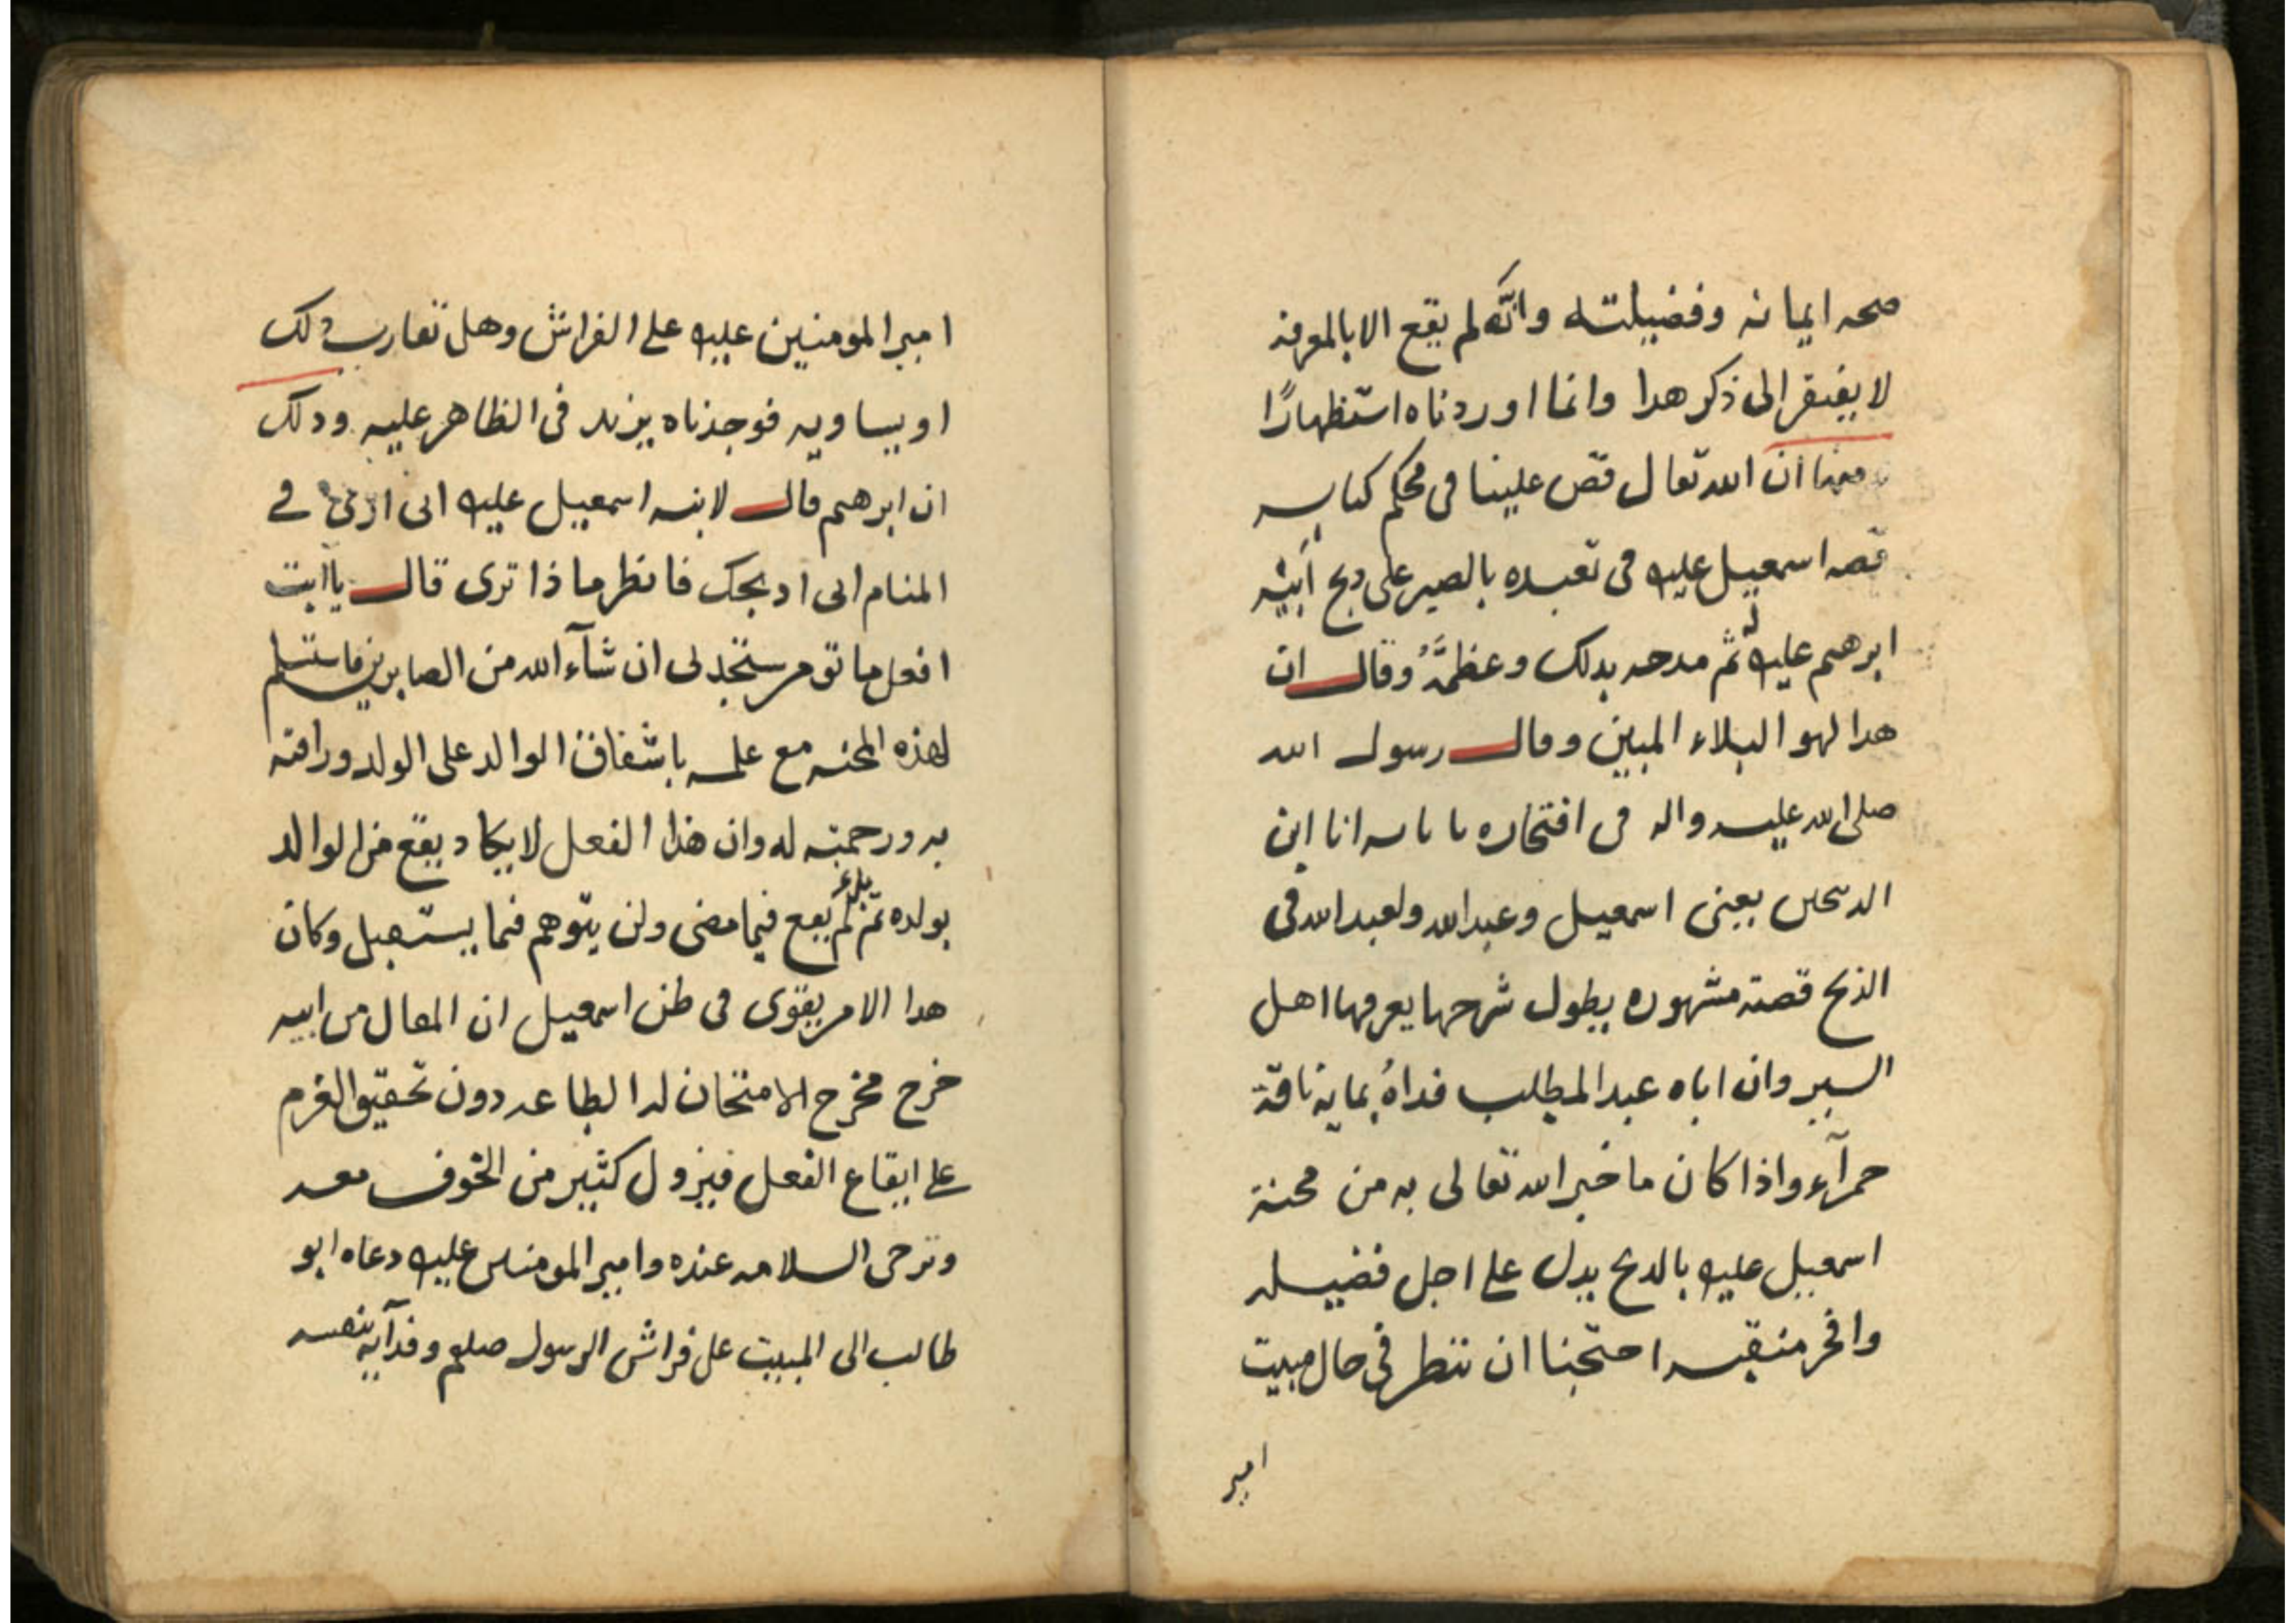 صحه ايمانه وفضيلته وانّه لم يقع الا بالمعرفه
لا يفتقر الى ذكر هدا وانما اوردناه استظهارًا
ان الله تعال قصّ علينا فى محكم كتابه
قصه اسمعيل عليه فى تعبده بالصبر على دبح ابيه
ابرهيم عليه ثم مدحه بدلك وعظّمَهُ وقال ان
هدا لهو البلاء المبين وقال رسول الله
صلى الله عليه واله فى افتخاره بابايه انا ابن
الدبيحين يعنى اسمعيل وعبد الله ولعبد الله فى
الذبح قصة مشهوره يطول شرحها يعرفها اهل
السير وان اباه عبد المطلب فداهُ بمايه ناقة
حمرآء واذا كان ما خبر الله تعالى به من محنة
اسمعيل عليه بالدبح يدل على اجل فضيله
وافخر منقبه احتجنا ان ننظر فى حال مبيت
امير
امير المومنين عليه على الفراش وهل تقارب دلك
او يساويه فوجدناه يزيد فى الظاهر عليه ودلك
ان ابرهيم قال لابنه اسمعيل عليه انى ارى فى
المنام انى ادبحك فانظر ماذا ترى قال ياابت
افعل ما تومر ستجدنى ان شآء الله من الصابرين فاستسلم
لهذه المحنه مع علمه باشفاق الوالد على الولد ورافته
به ورحمته له وان هذا الفعل لا يكاد يقع من الوالد
بولده بل لم يقع فيما مضى ولن يتوهم فيما يستقبل وكان
هدا الامر يقوى فى ظن اسمعيل ان المقال من ابيه
خرج مخرج الامتحان له الطاعه دون تحقيق العزم
على ايقاع الفعل فيزول كثير من الخوف معه
وترجى السلامه عنده وامير المومنين عليه دعاه ابو
طالب الى المبيت على فراش الرسول صلعم وفدآيه بنفسه